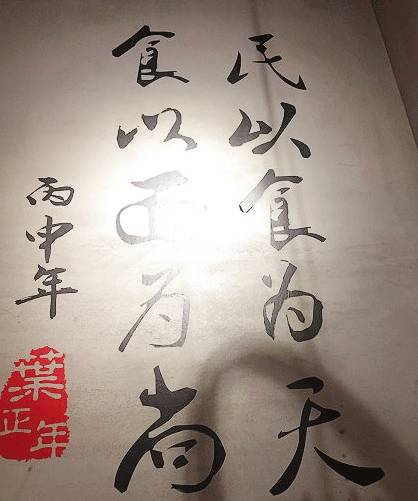 民以食为天
食以面为尚
丙申年
葉年正